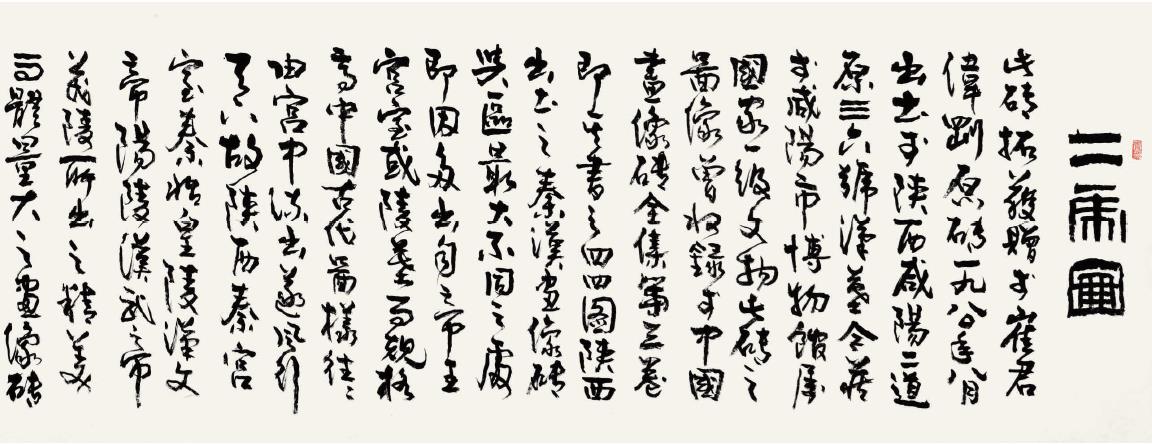 二虎圖
此磚拓獲贈于崔君
偉剛原磚一九八年八月
出土于陝西咸陽二道
原三六號漢墓今藏
于咸陽市博物館屬
國家一級文物此磚之
圖像曾收錄于中國
畫像磚全集第三卷
即其書之四四圖陝西
出土之秦漢畫像磚
與區最大不同之處
即因多出自之帝王
宮室或陵墓而規格
高中國古代圖樣往往
由宮中流出遂風行
天下故陝西秦宮
室秦始皇陵漢文
帝陽陵漢武之帝
茂陵所出之精美
而體量大之畫像磚